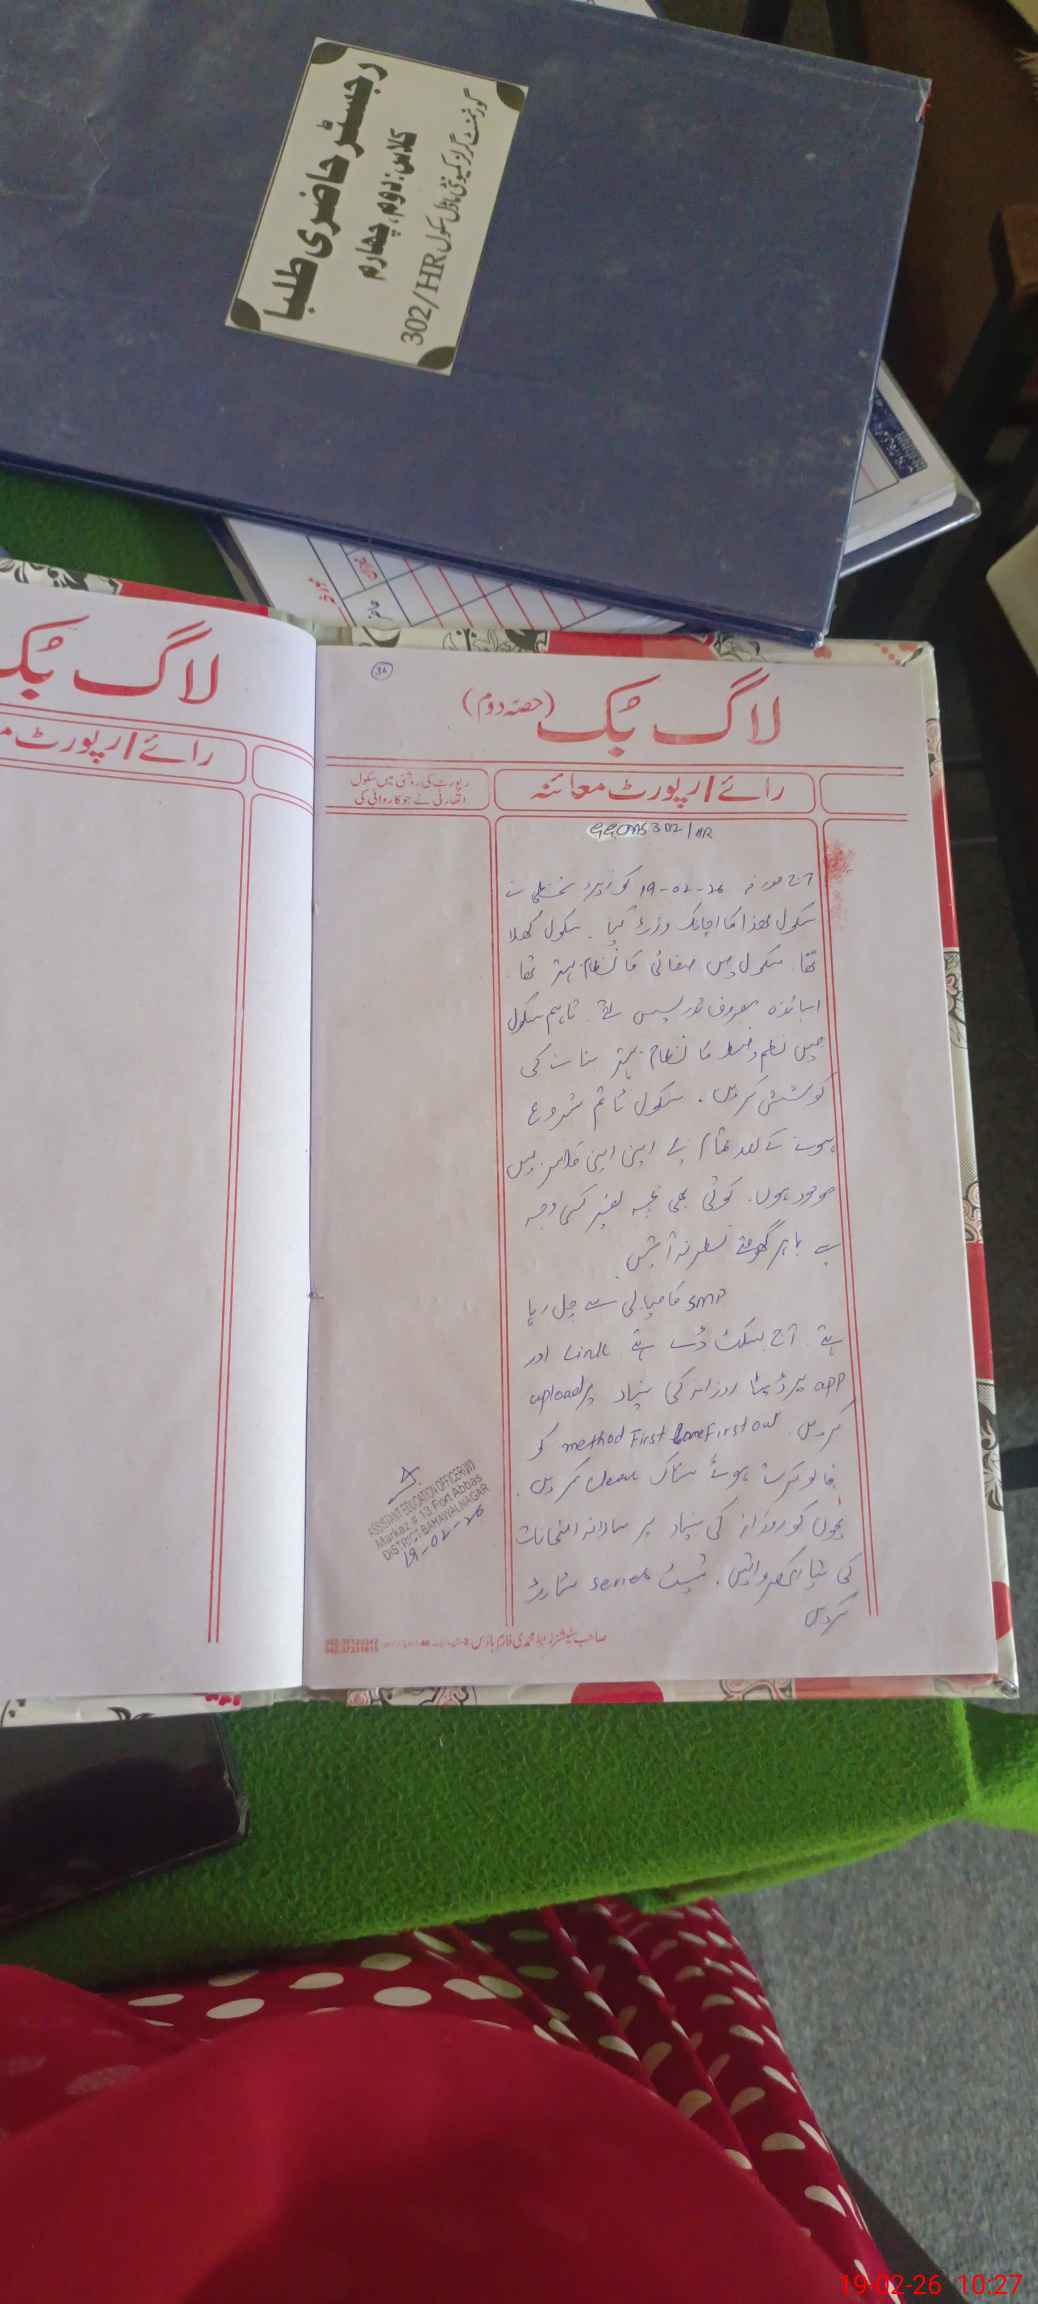 رجسٹر حاضری طلبا
کلاس: دوم، چہارم
گورنمنٹ گرلز کمیونٹی ماڈل سکول 302/HR
لاگ بُک
رائے / رپورٹ
36
لاگ بُک (حصہ دوم)
رائے / رپورٹ معائنہ
رپورٹ کی روشنی میں سکول
اتھارٹی نے جو کاروائی کی
GGCMS 302/HR
آج مورخہ 19-02-26 کو زیر
سکول ھذا کا اچانک وزٹ کیا۔ سکول کھلا
تھا۔ سکول میں صفائی کا نظام بہتر تھا۔
اساتذہ مصروف تدریس تھے۔ تاہم سکول
میں نظم و ضبط کا نظام بہتر بنانے کی
کوشش کریں۔ سکول ٹائم شروع
ہونے کے بعد تمام بچے اپنی اپنی کلاسز میں
موجود ہوں۔ کوئی بھی بچہ بغیر کسی وجہ
کے باہر گھومتے نظر نہ آئیں۔
SMP کامیابی سے چل رہا
ہے۔ آج بسکٹ ڈے ہے۔ Link اور
app پر ڈیٹا روزانہ کی بنیاد پر upload
کریں۔ method First Come First Out کو
فالو کرتے ہوئے سٹاک clear کریں۔
بچوں کو روزانہ کی بنیاد پر سالانہ امتحانات
کی تیاری کروائیں۔ ٹیسٹ series سٹارٹ
کریں
ASSISTANT EDUCATION OFFICER(W)
Markaz # 13 Fort Abbas
DISTRICT BAHAWALNAGAR
19-02-26
19-02-26 10:27